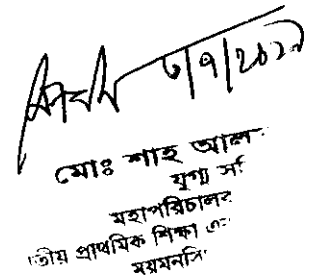 মোঃ শাহ আল
যুগ্ম সি
মহাপরিচালক
তীয় প্রাথমিক শিক্ষা এ
ময়মনসি